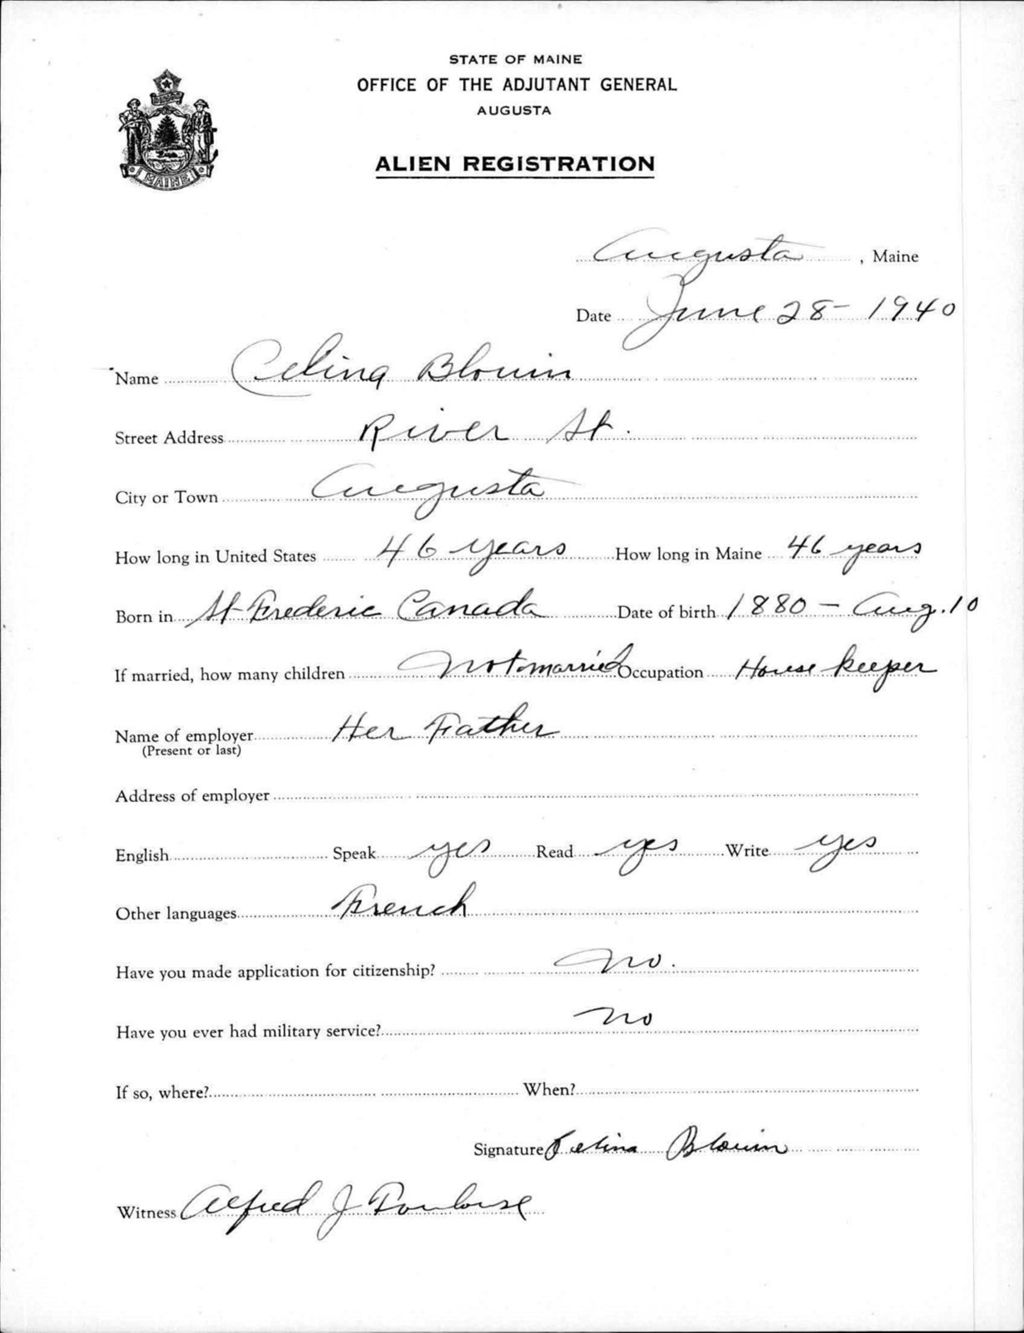 STATE OF MAINE
OFFICE OF THE ADJUTANT GENERAL
AUGUSTA
ALIEN REGISTRATION
MAINE
Augusta, Maine
Date June 28 - 1940
Name Celina Blouin
Street Address River St.
City or Town Augusta
How long in United States 46 years How long in Maine 46 years
Born in St Frederic Canada Date of birth 1880 - Aug. 10
If married, how many children Not married Occupation House keeper
Name of employer Her Father
(Present or last)
Address of employer
English Speak yes Read yes Write yes
Other languages French
Have you made application for citizenship? No.
Have you ever had military service? No
If so, where? When?
Signature Celina Blouin
Witness Alfred J Toulouse